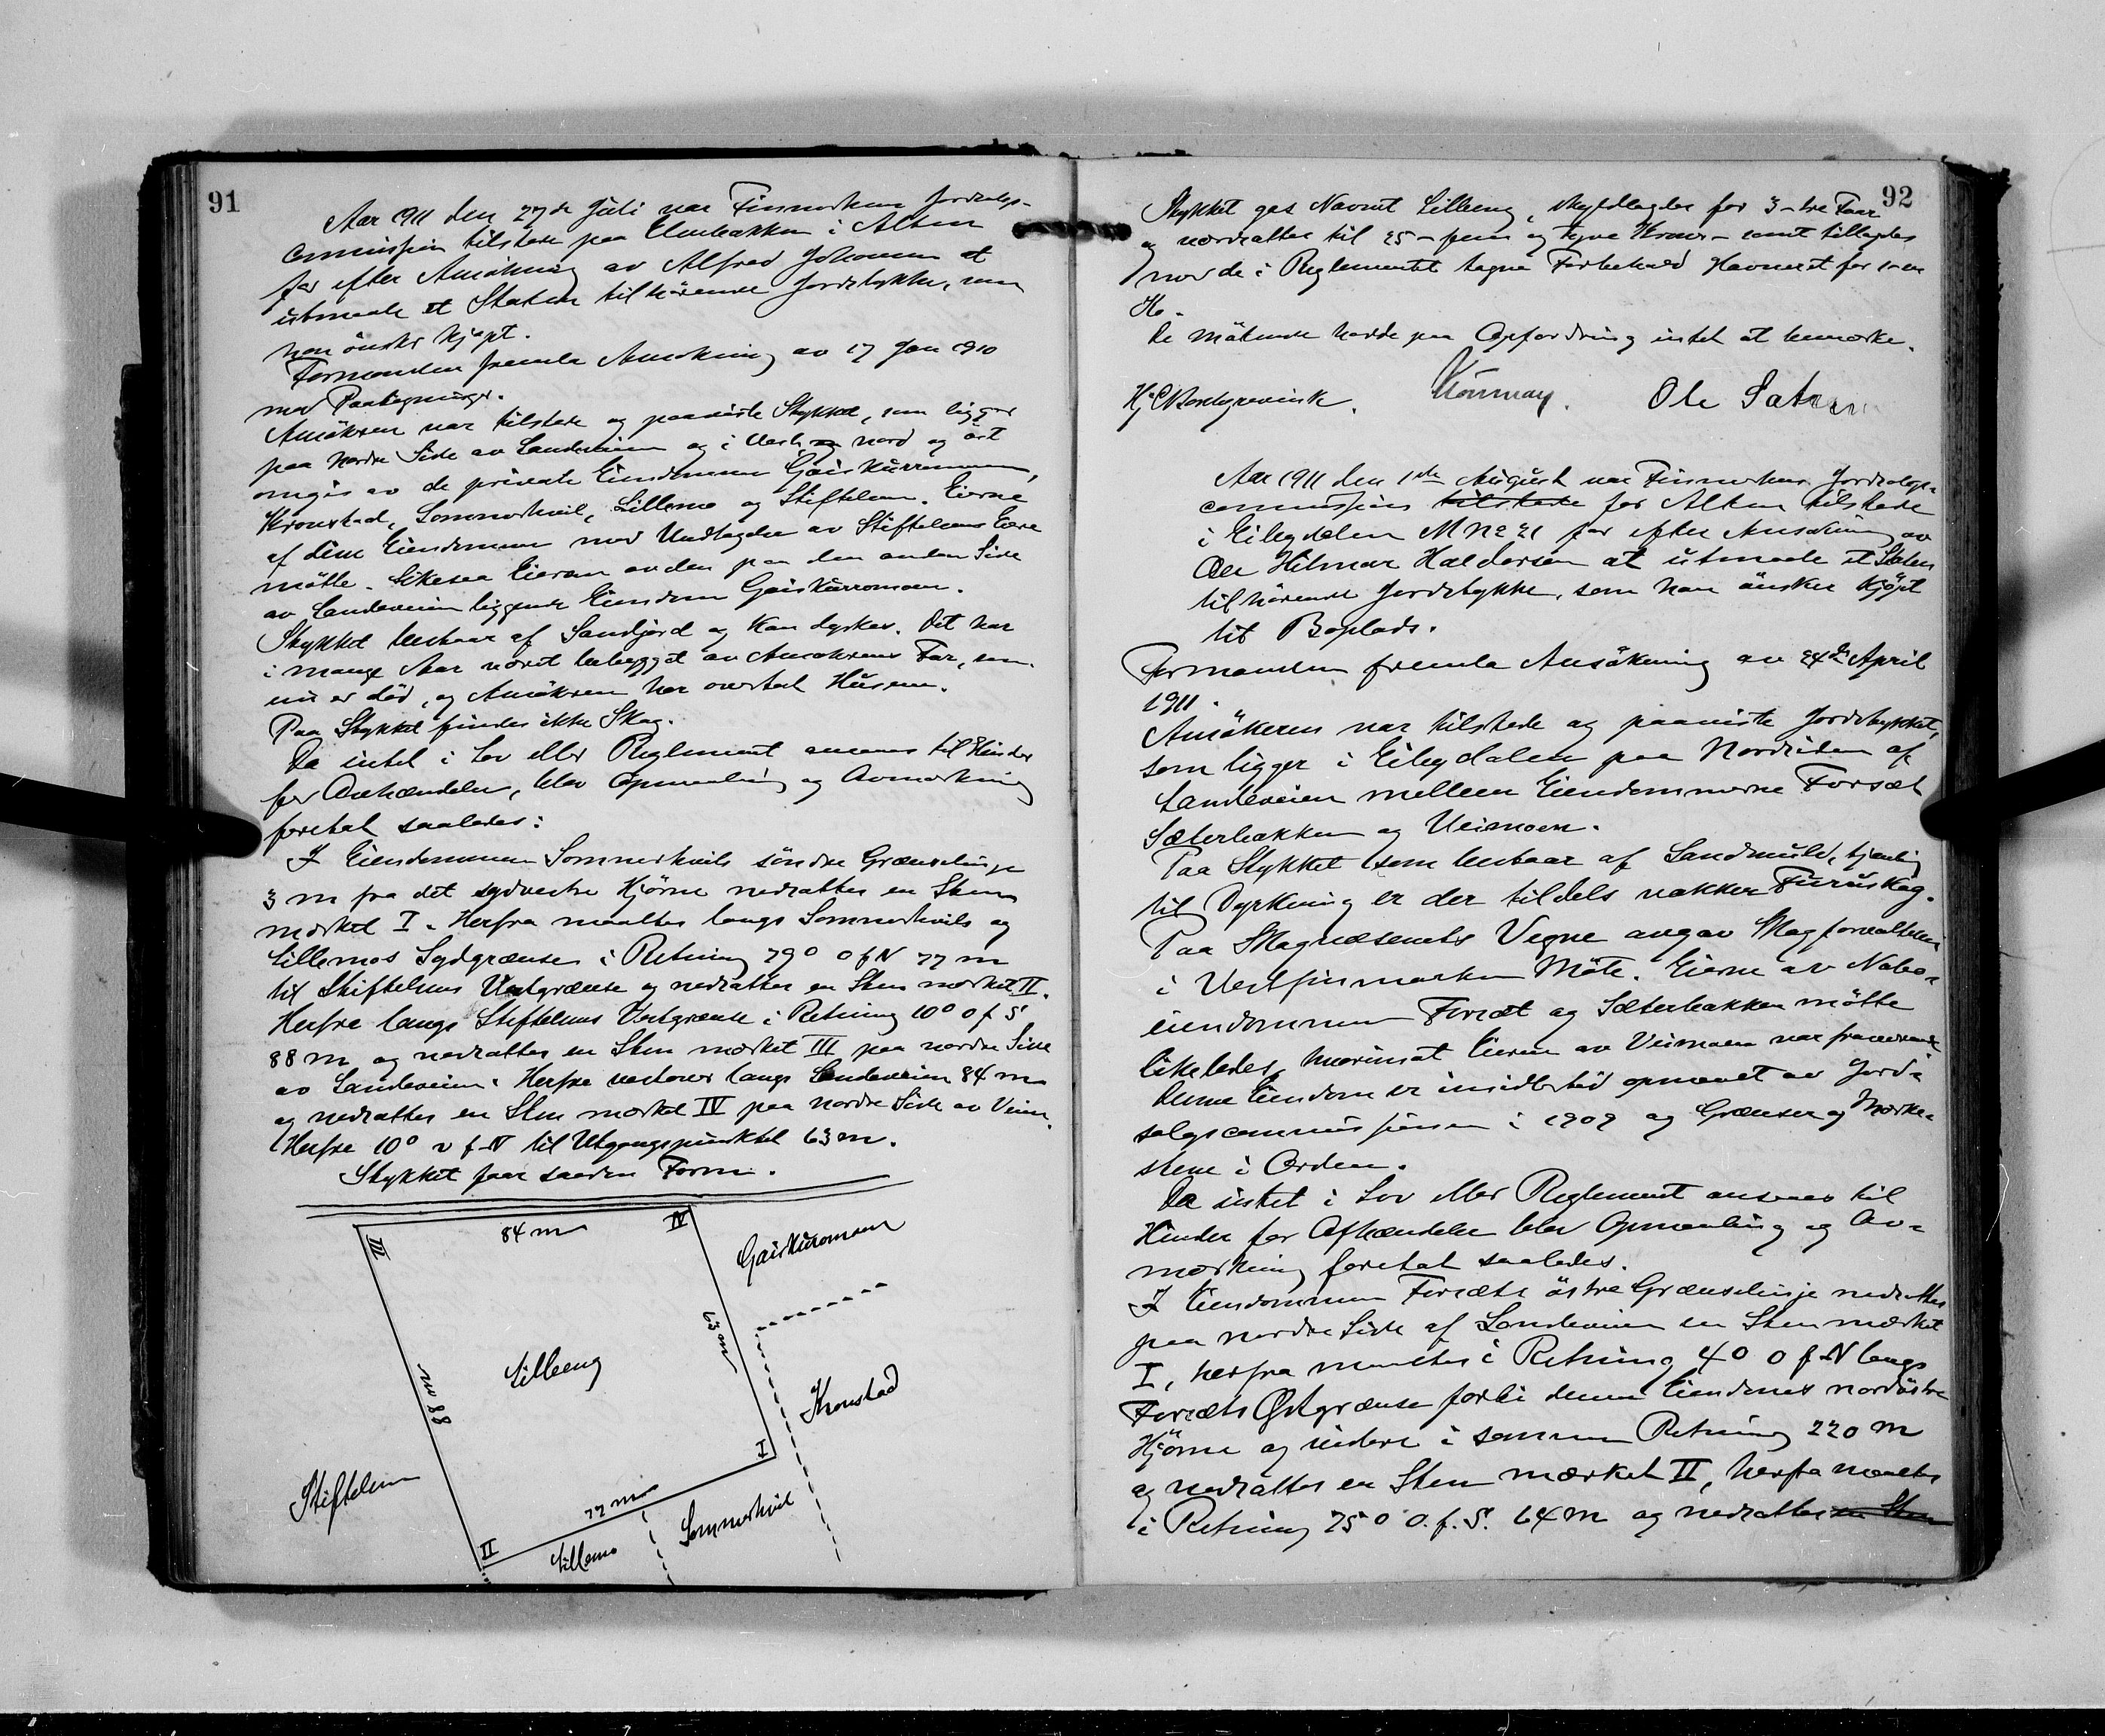 91
Aar 1911 den 27de Juli var Finmarkens Jordsalgs-
commission tilstede paa Elvebakken i Alten
for efter Ansökning av Alfred Johansen at
utmaale et Staten tilhörende Jordstykke, som
han önsker kjöpt.
Formanden fremla Ansökning av 17 Jan 1910
med Paategninger.
Ansökeren var tilstede og paaviste Stykket, som ligger
paa nordre Side av Landeveien og i Vest, nord og öst
omgis av de private Eiendomme Gaiskurromoen,
Kronstad, Sommerhvil, Lillemo og Stiftelsen. Eierne
af disse Eiendomme med Undtagelse av Stiftelsens Eiere
mötte. Likesaa Eieren av den paa den anden Side
av Landeveien liggende Eiendom Gaiskurromoen.
Stykket bestaar af Sandjord og kan dyrkes. Det har
i mange Aar været bebygget av Ansökerens Far, som
nu er död, og Ansökeren har overtat Husene.
Paa Stykket findes ikke Skog.
Da intet i Lov eller Reglement ansees til Hinder
for Avhændelse, blev Opmaaling og Avmerkning
foretat saaledes:
I Eiendommen Sommerhvils söndre Grænselinje
3 m fra det sydvestre Hjörne nedsattes en Sten
merket I. Herfra maaltes langs Sommerhvils og
Lillemos Sydgrænse i Retning 79° o f N 77 m
til Stiftelsens Vestgrænse og nedsattes en Sten merket II.
Herfra langs Stiftelsens Vestgrænse i Retning 10° o f S
88 m og nedsattes en Sten merket III paa nordre Side
av Landeveien. Herfra vestover langs Landeveien 84 m
og nedsattes en Sten merket IV paa nordre Side av Veien.
Herfra 10° v f N til Utgangspunktet 63 m.
Stykket faar saadan Form.
III
84 m
IV
Gaiskuromoen
63 m
88 m
Lilleeng
Kronstad
I
Stiftelsen
77 m
Sommerhvil
II
Lillemo
92
Stykket gas Navnet Lilleeng, skyldlagdes for 3 - tre Øre
og værdsattes til 25 - fem og tyve Kroner - samt tillagdes
med de i Reglementet tagne Forbehold Havneret for 1 en
Ko.
De mötende hadde paa Opfordring intet at bemerke.
Ole Sat
Aar 1911 den 1ste August var Finmarkens Jordsalgs-
commission tilstede for Alten tilstede
i Eibydalen M No 21 for efter Ansökning av
Ole Hilmar Haldorsen at utmaale et Staten
tilhörende Jordstykke, som han önsker kjöpt
til Boplads.
Formanden fremla Ansökning av 24de April
1911.
Ansökeren var tilstede og paaviste Jordstykket,
som ligger i Eibydalen paa Nordsiden af
Landeveien mellem Eiendommerne Forsæt
Sæterbakken og Veimoen.
Paa Stykket som bestaar af Sandmuld, tjenlig
til Dyrkning er der tildels vakker Furuskog.
Paa Skogvæsenets Vegne avgav Skogforvalteren
i Vestfinmarken Möte. Eierne av Nabo-
eiendommen Forsæt og Sæterbakken mötte
likeledes, hvorimot Eieren av Veimoen var fraværende.
Denne Eiendom er imidlertid opmaalt av Jord-
salgscommissionen i 1909 og Grænser og Mærke-
stene i Orden.
Da intet i Lov eller Reglement ansees til
Hinder for Afhændelse blev Opmaaling og Av-
merkning foretat saaledes.
I Eiendommen Forsæts östre Grænselinje nedsattes
paa nordre Side af Landeveien en Sten mærket
I, herfra maaltes i Retning 4° o f N langs
Forsæts Østgrænse forbi denne Eiendoms nordöstre
Hjörne og videre i samme Retning 220 m
og nedsattes en Sten mærket II, herfra maaltes
i Retning 75° o. f. S. 64 m og nedsattes en Sten